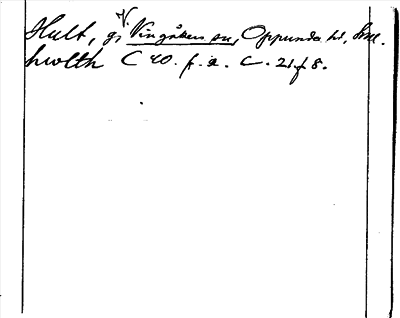 V.
Hult, g, Vingåkers sn, Oppunda hd, Sml.
hwlth C 20. f. 2. C. 21 f 8.